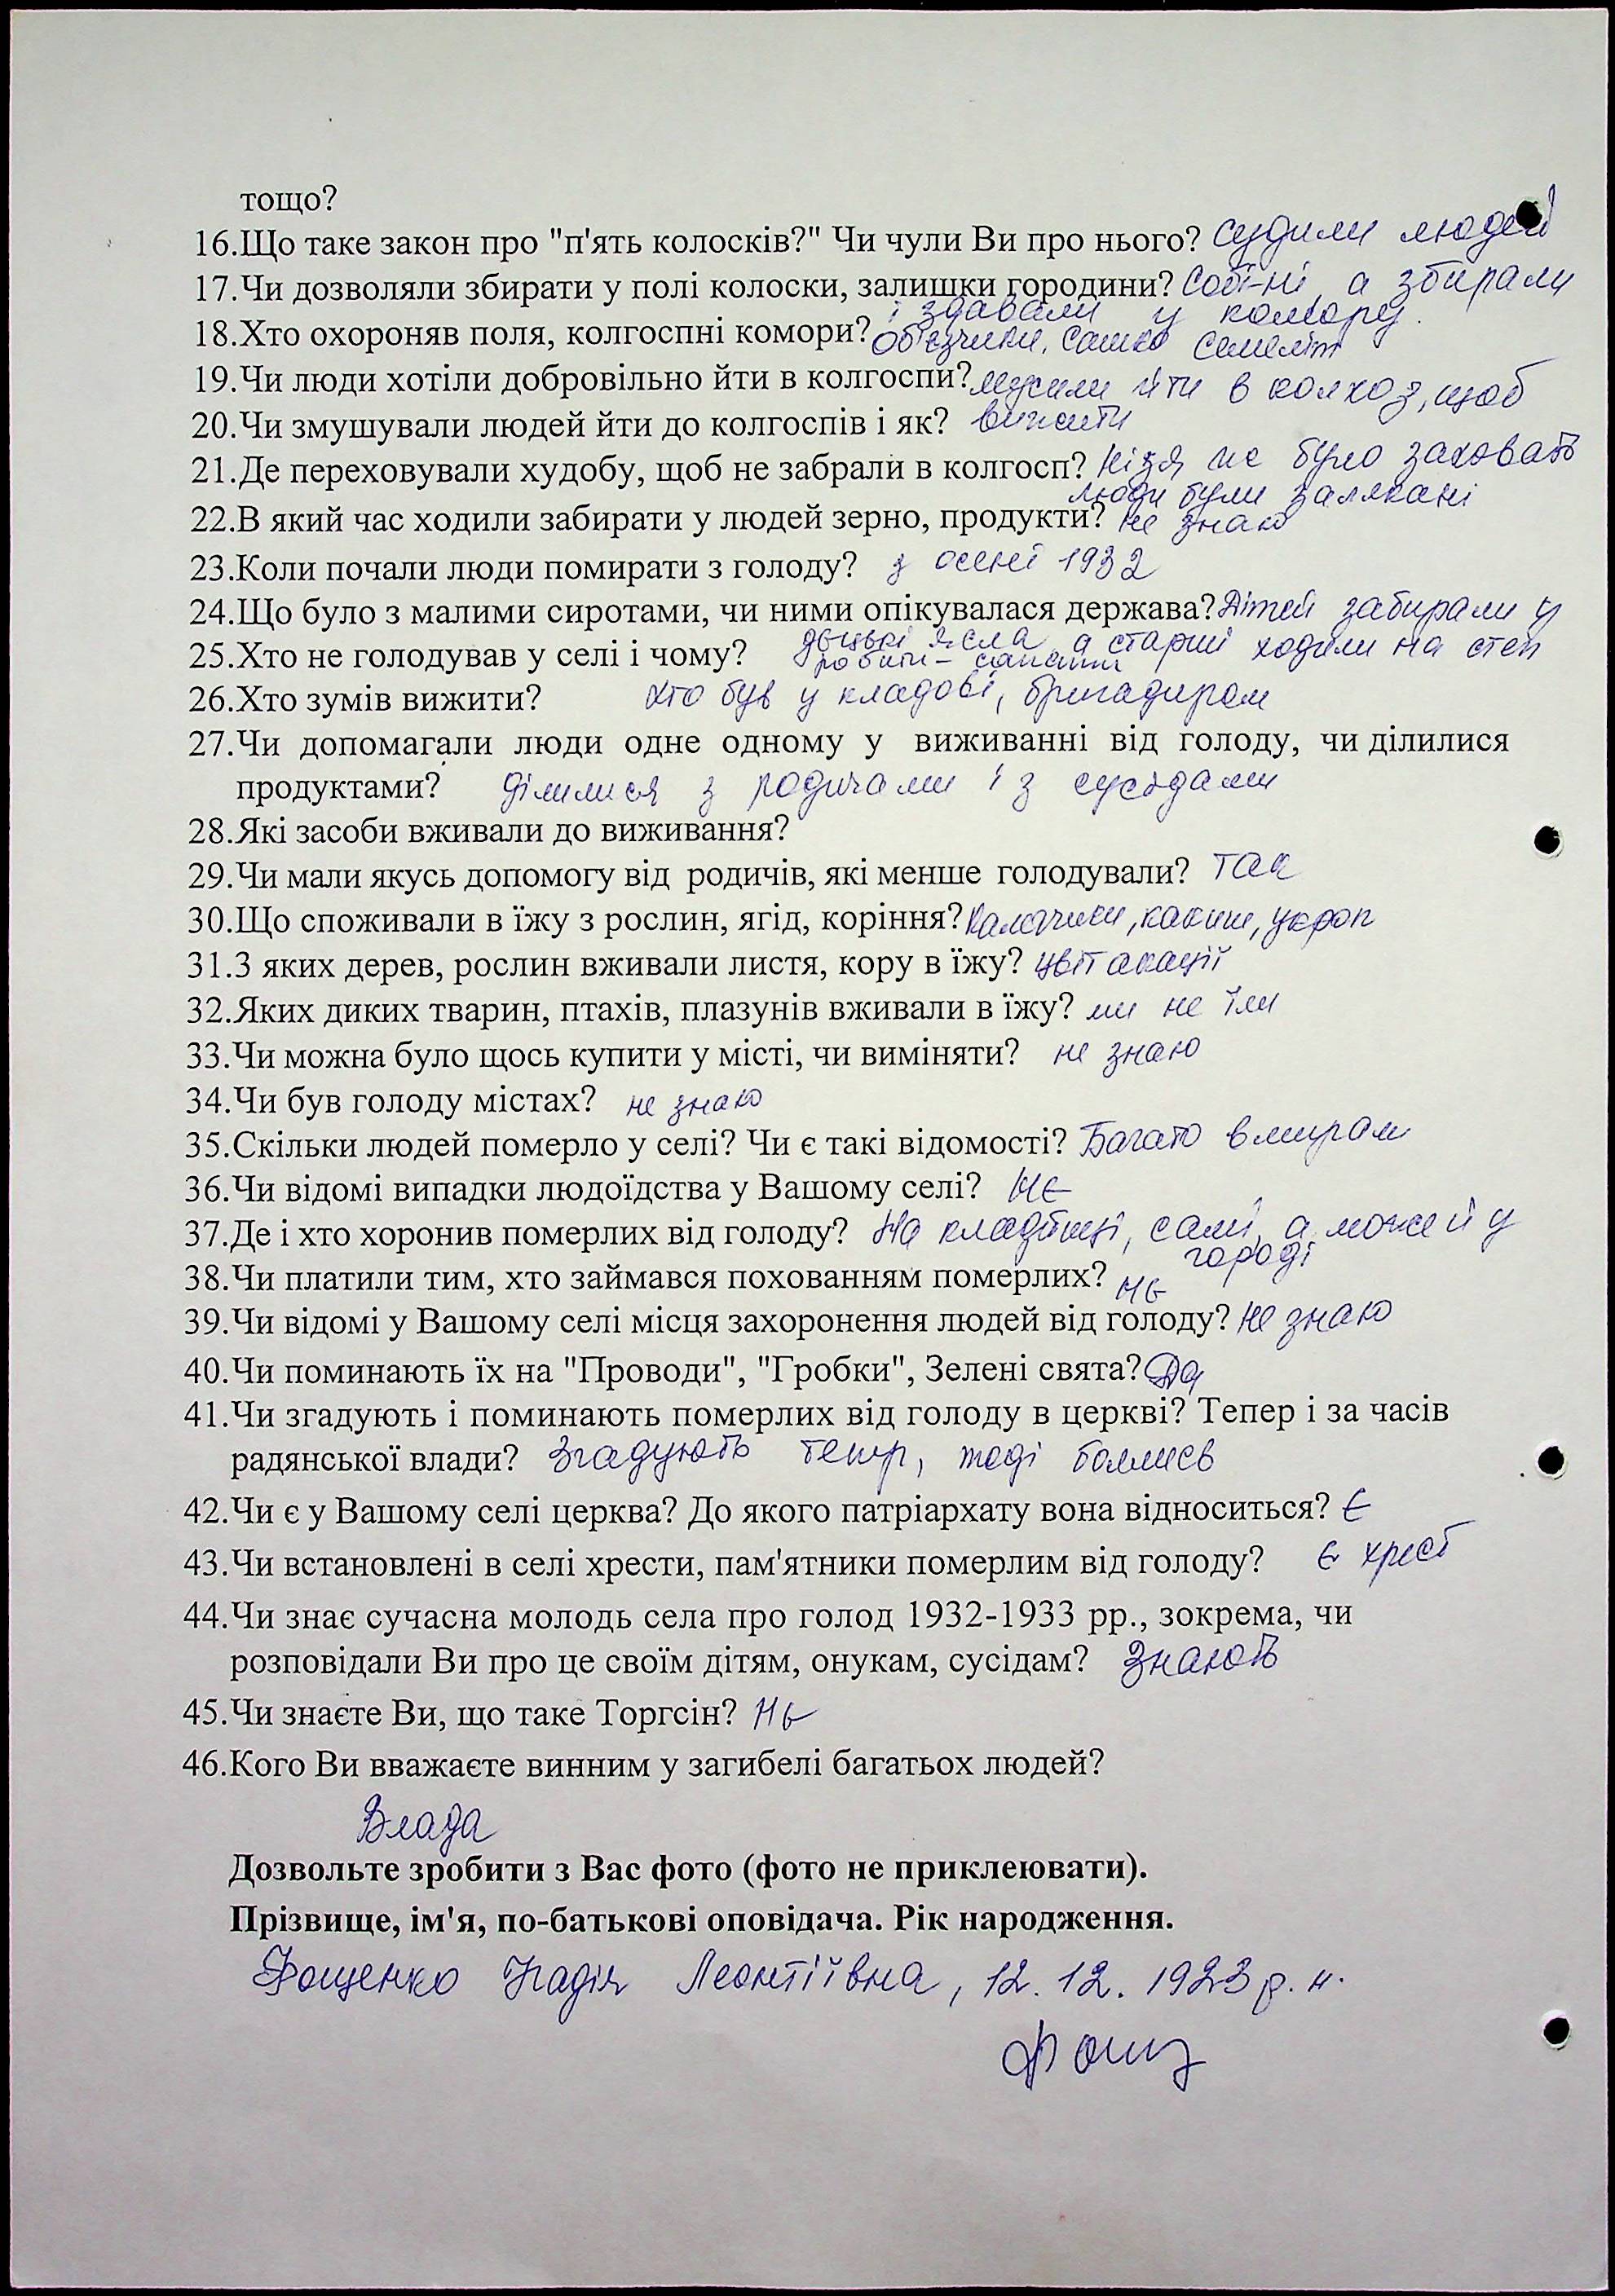 тощо?
16.Що таке закон про "п'ять колосків?" Чи чули Ви про нього? Судили людей
17.Чи дозволяли збирати у полі колоски, залишки городини? Собі-ні, а збирали
і здавали у комору.
18.Хто охороняв поля, колгоспні комори? Об'єзчики, Сашко
19.Чи люди хотіли добровільно йти в колгоспи? мусили йти в колхоз, щоб
20.Чи змушували людей йти до колгоспів і як? вижити
21.Де переховували худобу, щоб не забрали в колгосп? Нідзя не було заховать
люди були залякані
22.В який час ходили забирати у людей зерно, продукти? не знаю
23.Коли почали люди помирати з голоду? з осені 1932
24.Що було з малими сиротами, чи ними опікувалася держава? Дітей забирали у
дєцькі ясла, а старші ходили на степ
25.Хто не голодував у селі і чому? робити - сапати
26.Хто зумів вижити? хто був у кладові, бригадиром
27.Чи допомагали люди одне одному у виживанні від голоду, чи ділилися
продуктами? ділилися з родичами і з сусідами
28.Які засоби вживали до виживання?
29.Чи мали якусь допомогу від родичів, які менше голодували? так
30.Що споживали в їжу з рослин, ягід, коріння? Калачики, какиш, укроп
31.З яких дерев, рослин вживали листя, кору в їжу? цвіт акації
32.Яких диких тварин, птахів, плазунів вживали в їжу? ми не їли
33.Чи можна було щось купити у місті, чи виміняти? не знаю
34.Чи був голоду містах? не знаю
35.Скільки людей померло у селі? Чи є такі відомості? Багато вмирали
36.Чи відомі випадки людоїдства у Вашому селі? Нє
37.Де і хто хоронив померлих від голоду? На кладбищі, самі, а може й у
городі
38.Чи платили тим, хто займався похованням померлих? Нє
39.Чи відомі у Вашому селі місця захоронення людей від голоду? Не знаю
40.Чи поминають їх на "Проводи", "Гробки", Зелені свята? Да
41.Чи згадують і поминають померлих від голоду в церкві? Тепер і за часів
радянської влади? Згадують тепер, тоді боялись
42.Чи є у Вашому селі церква? До якого патріархату вона відноситься? Є
43.Чи встановлені в селі хрести, пам'ятники померлим від голоду? Є хрест
44.Чи знає сучасна молодь села про голод 1932-1933 рр., зокрема, чи
розповідали Ви про це своїм дітям, онукам, сусідам? Знають
45.Чи знаєте Ви, що таке Торгсін? Нє
46.Кого Ви вважаєте винним у загибелі багатьох людей?
Влада
Дозвольте зробити з Вас фото (фото не приклеювати).
Прізвище, ім'я, по-батькові оповідача. Рік народження.
Фощенко Надія Леонтіївна, 12.12.1923 р.н.
Фощ